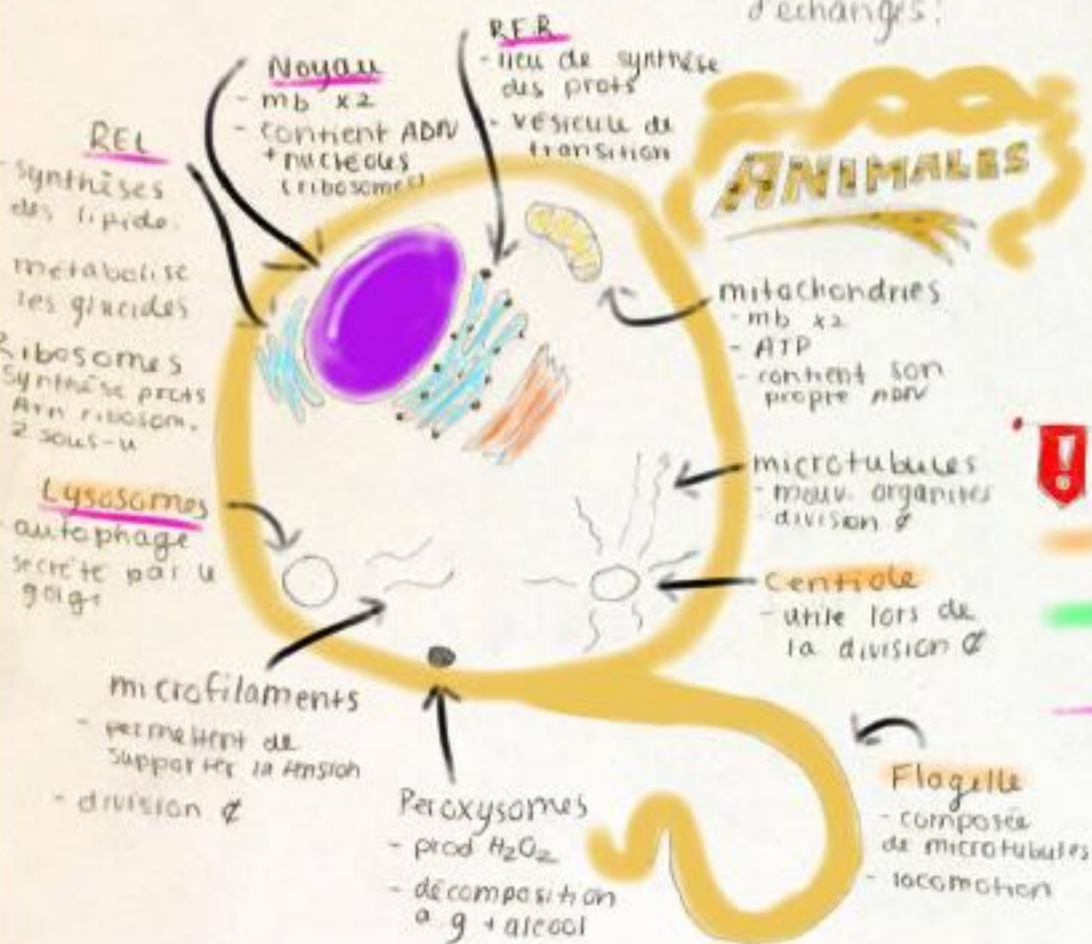 d'échanges!
Noyau
- mb x2
- contient ADN
+ nucléoles
(ribosomes)
R.E.R
- lieu de synthèse
des prots
- vésicule de
transition
ANIMALES
REL
- synthèses
des lipide.
métabolise
les glucides
Ribosomes
Synthèse prots
Arn ribosom.
2 sous-u
Lysosomes
- autophage
secrète par le
golgi
mitochondries
- mb x2
- ATP
- contient son
propre ADN
microtubules
- mouv. organites
- division ₵
!
Centiole
- utile lors de
la division ₵
microfilaments
- permettent de
supporter la tension
- division ₵
Peroxysomes
- prod H₂O₂
- décomposition
a.g + alcool
Flagelle
- composée
de microtubules
- locomotion